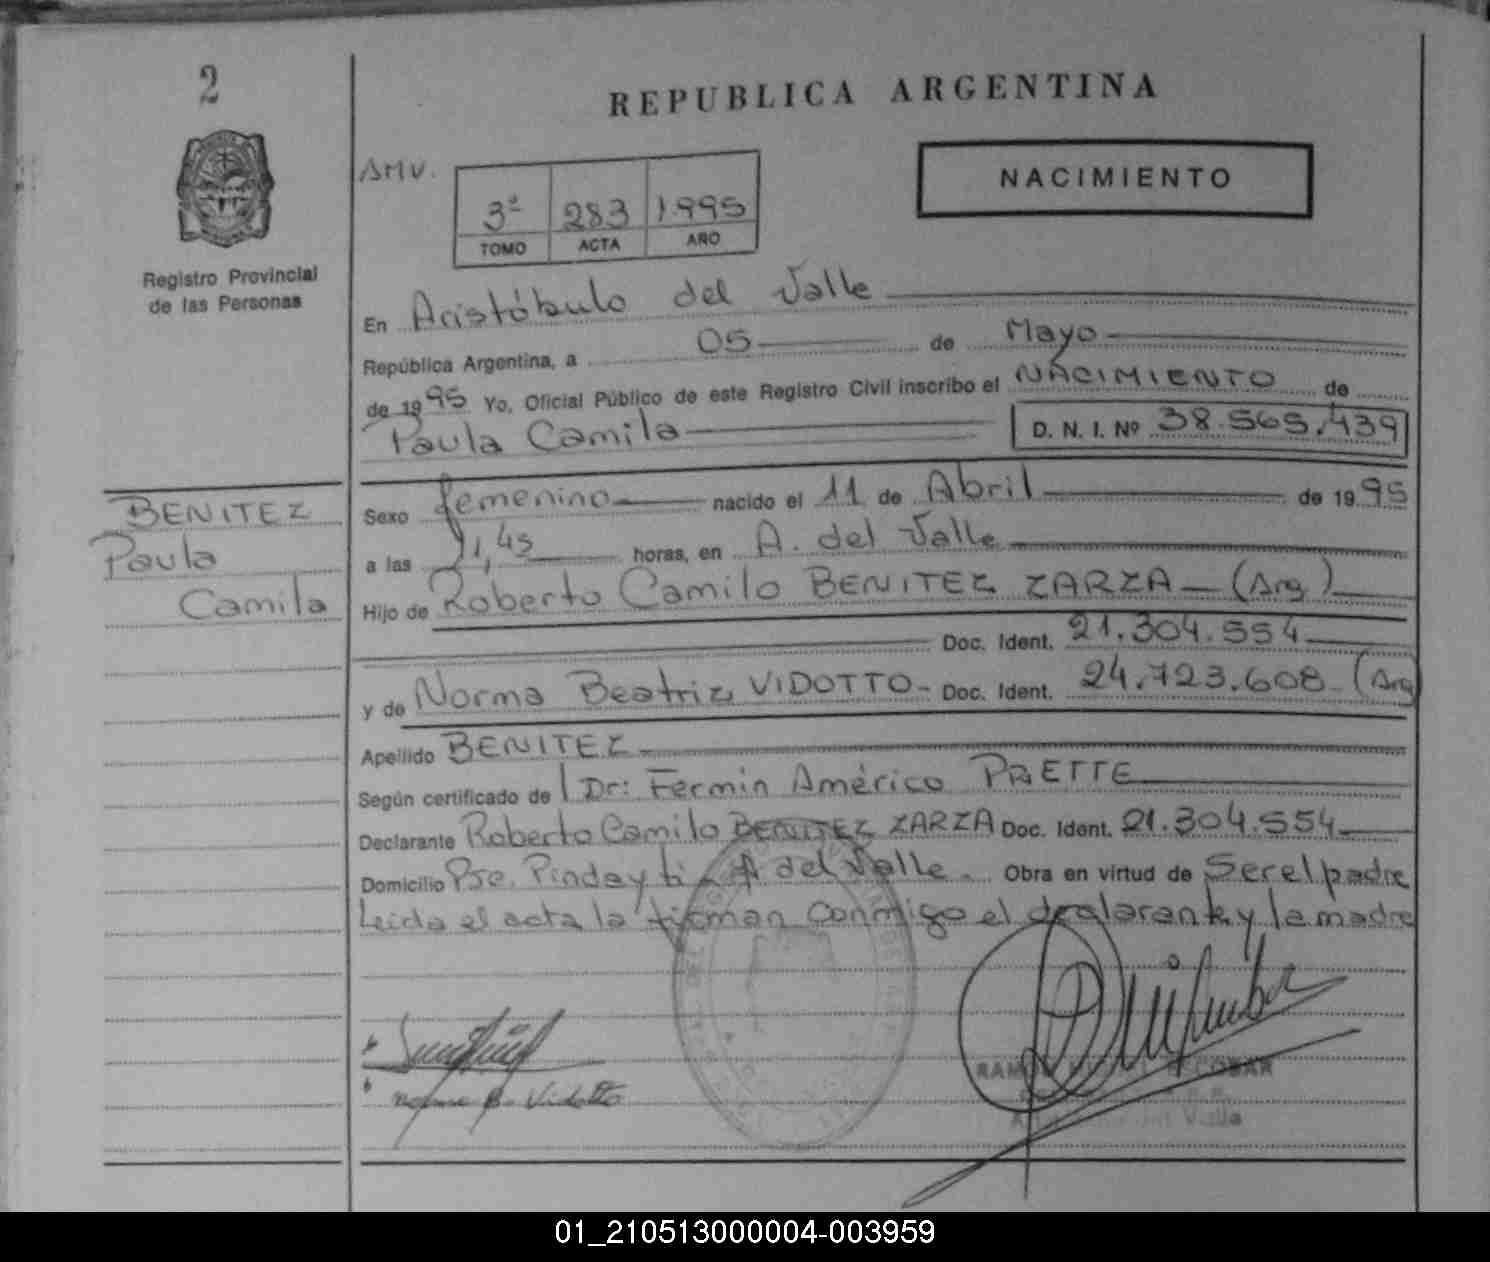 2
REPUBLICA ARGENTINA
NACIMIENTO
AMV.
3º 283 1.995
TOMO ACTA AÑO
Registro Provincial
de las Personas
En Aristóbulo del Valle
República Argentina, a 05 de Mayo
de 1995 Yo, Oficial Público de este Registro Civil inscribo el NACIMIENTO de
Paula Camila D. N. I. Nº 38.565.439
BENITEZ
Paula
Camila
Sexo femenino nacido el 11 de Abril de 1995
a las ,45 horas, en A. del Valle
Hijo de Roberto Camilo BENITEZ ZARZA - (Arg)
Doc. Ident. 21.304.554
y de Norma Beatriz VIDOTTO - Doc. Ident. 24.723.608 - (Arg
Apellido BENITEZ
Según certificado de Dr: Fermin Américo PRETTE
Declarante Roberto Camilo BENITEZ ZARZA Doc. Ident. 21.304.554
Domicilio Pje. Pindayti - A del Valle. Obra en virtud de Ser el padre
Leida el acta la firman conmigo el declarante y la madre
Norma B. Vidotto
ESCOBAR
Valle
01_210513000004-003959